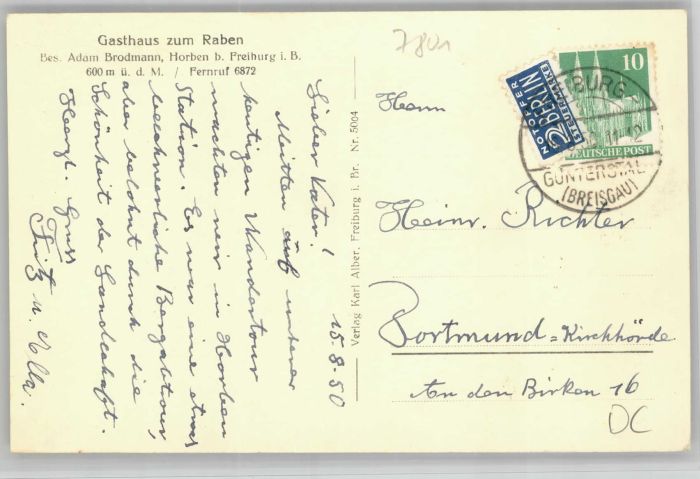 Gasthaus zum Raben
Bes. Adam Brodmann, Horben b. Freiburg i. B.
600 m ü. d. M. / Fernruf 6872
15-8-50
Lieber Vater!
Mitten auf unserer
heutigen Wandertour
machten wir in Horben
Station. Es war eine etwas
beschwerliche Bergabtour,
aber belohnt durch die
Schönheit der Landschaft.
Herzl. Gruss
Fritz u.
Verlag Karl Alber, Freiburg i. Br. Nr. 5004
7801
NOTOPFER
2 BERLIN
STEUERMARKE
10
DEUTSCHE POST
FREIBURG
11-12
GÜNTERSTAL
(BREISGAU)
Herrn
Heinr. Richter
Dortmund-Kirchhörde
An den Birken 16
DC